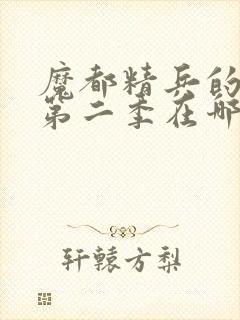 魔都精兵的
第二季在哪
轩辕方梨